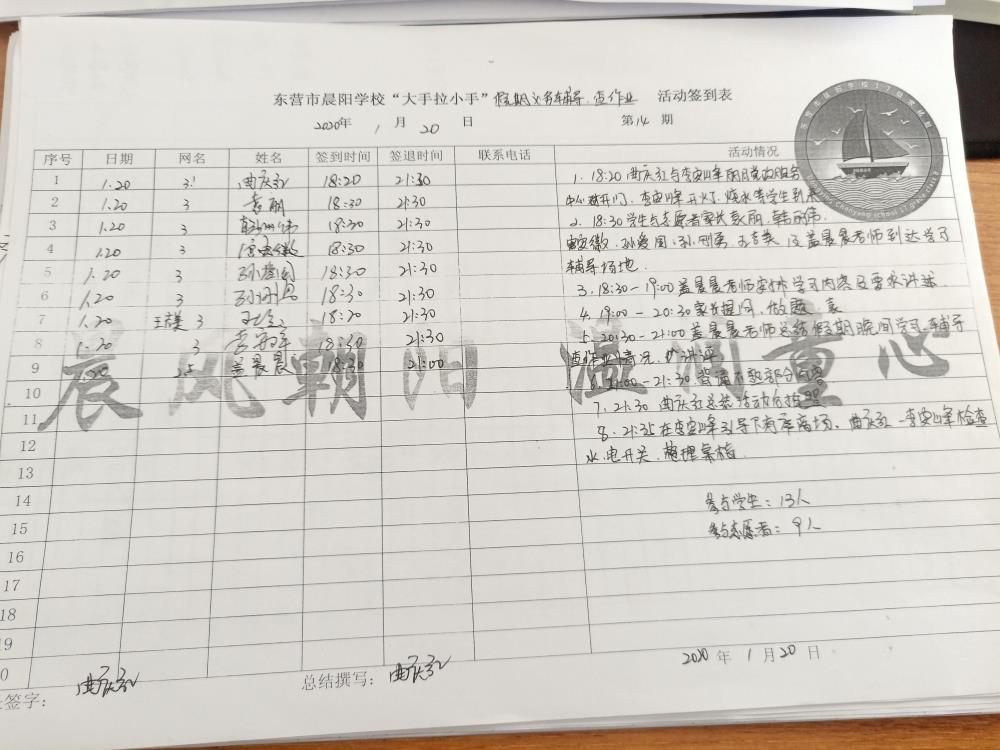 东营市晨阳学校“大手拉小手”假期义务辅导、查作业 活动签到表
2020年 1 月 20 日 第14期
序号 日期 网名 姓名 签到时间 签退时间 联系电话 活动情况
1 1.20 3.1 曲庆红 18:20 21:30
2 1.20 3 袁丽 18:30 21:30
3 1.20 3 18:30 21:30
4 1.20 3 18:30 21:30
5 1.20 3 孙爱国 18:30 21:30
6 1.20 3 孙刚勇 18:30 21:30
7 1.20 3 18:20 21:30
8 1.20 3 18:30 21:30
9 1.20 25 盖晨晨 18:30 21:00
10
11
12
13
14
15
16
17
18
19
20
1. 18:20 曲庆红与李安峰
开门、李安峰开灯、烧水等学生到来
2. 18:30学生与志愿者家长袁丽、韩丽伟、
孙爱国、孙刚勇、及盖晨晨老师到达学习
辅导场地.
3. 18:30-19:00 盖晨晨老师安排学习内容及要求讲述.
4. 19:00-20:30 家长提问、做题
5. 20:30-21:00盖晨晨老师总结假期晚间学习、辅导
情况
6. 21:00-21:30 背诵不熟部分内容
7. 21:30 曲庆红总结活动后拍照
8. 21:35在李安峰引导下有序离场、曲庆红、李安峰检查
水、电开关、整理桌椅.
参与学生:13人
参与志愿者:9人
2020年 1月20日
签字: 曲庆红
总结撰写: 曲庆红
晨风朝阳 温润童心
东营市晨阳学校17级
Chenyang school 17 grade